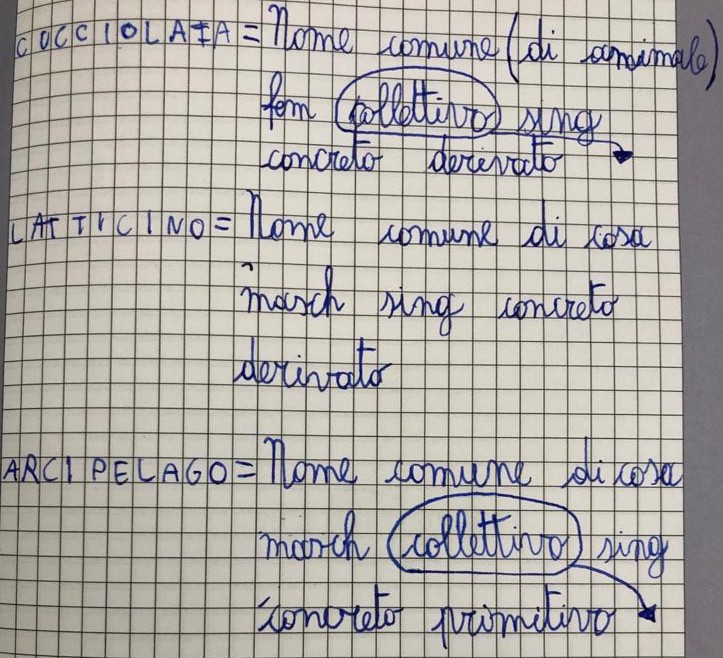 COCCIOLAIA = Nome comune (di animale)
fem collettivo sing
concreto derivato
LATTICINO = Nome comune di cosa
masch sing concreto
derivato
ARCIPELAGO = Nome comune di cosa
masch collettivo sing
concreto primitivo